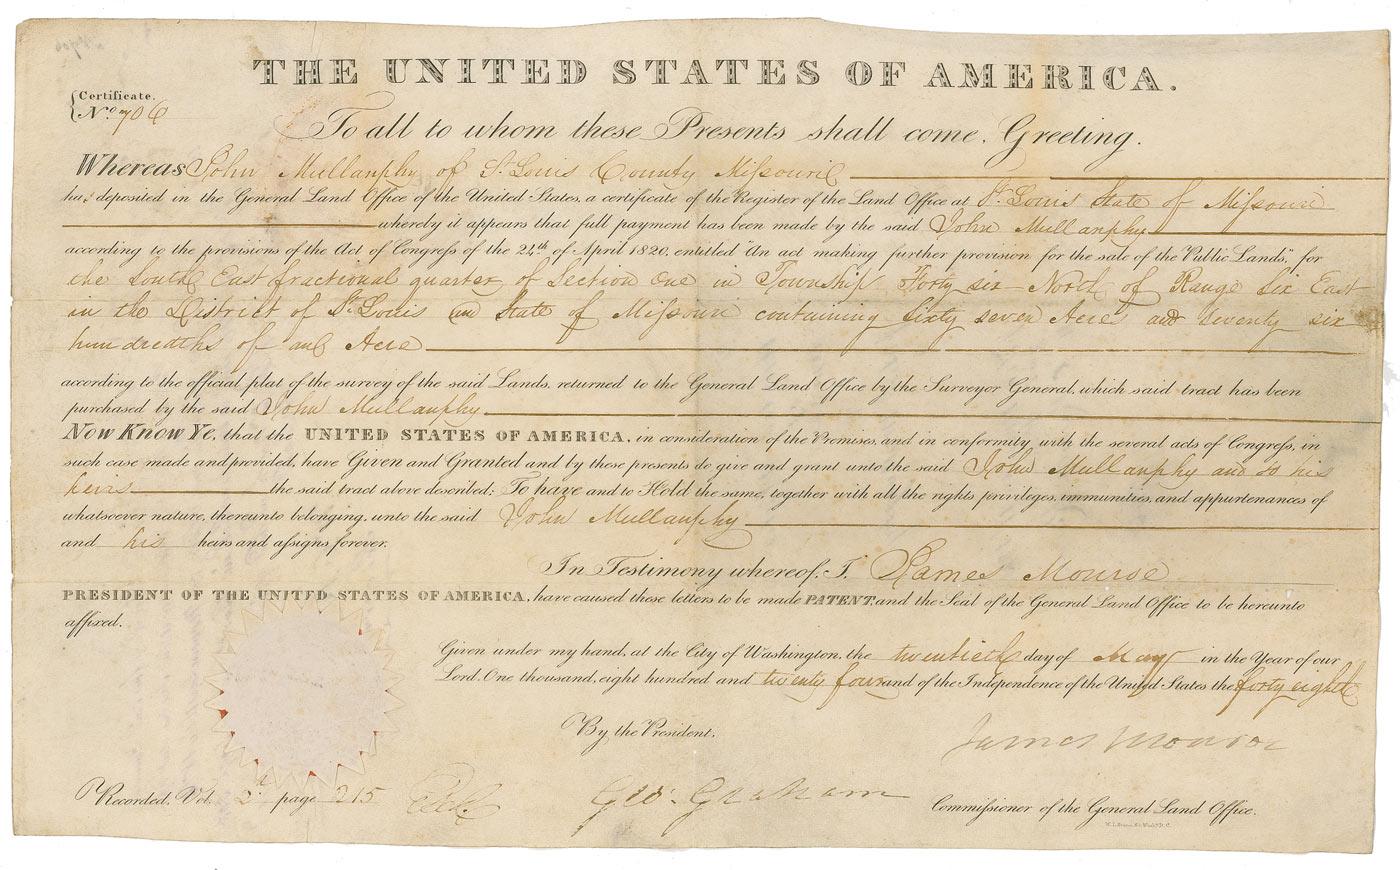 THE UNITED STATES OF AMERICA.
Certificate.
No. 706
To all to whom these Presents shall come, Greeting.
Whereas John Mullanphy of St. Louis County Missouri
has deposited in the General Land Office of the United States, a certificate of the Register of the Land Office at St. Louis State of Missouri
whereby it appears that full payment has been made by the said John Mullanphy
according to the provisions of the Act of Congress of the 24th of April 1820, entitled "An act making further provision for the sale of the Public Lands," for
the South East fractional quarter of Section One in Township Forty six North of Range Six East
in the District of St. Louis and State of Missouri containing Sixty seven Acres and seventy six
hundredths of an Acre
according to the official plat of the survey of the said Lands, returned to the General Land Office by the Surveyor General, which said tract has been
purchased by the said John Mullanphy
Now Know Ye, that the UNITED STATES OF AMERICA, in consideration of the Premises, and in conformity with the several acts of Congress, in
such case made and provided, have Given and Granted and by these presents do give and grant unto the said John Mullanphy and to his
heirs the said tract above described; To have and to Hold the same, together with all the rights privileges, immunities, and appurtenances of
whatsoever nature, thereunto belonging, unto the said John Mullanphy
and his heirs and assigns forever.
In Testimony whereof, I, James Monroe
PRESIDENT OF THE UNITED STATES OF AMERICA, have caused these letters to be made PATENT, and the Seal of the General Land Office to be hereunto
affixed.
Given under my hand, at the City of Washington, the twentieth day of May in the Year of our
Lord, One thousand, eight hundred and twenty four and of the Independence of the United States the forty eighth
By the President,
James Monroe
Recorded, Vol. 2d page 215
Geo. Graham
Commissioner of the General Land Office.